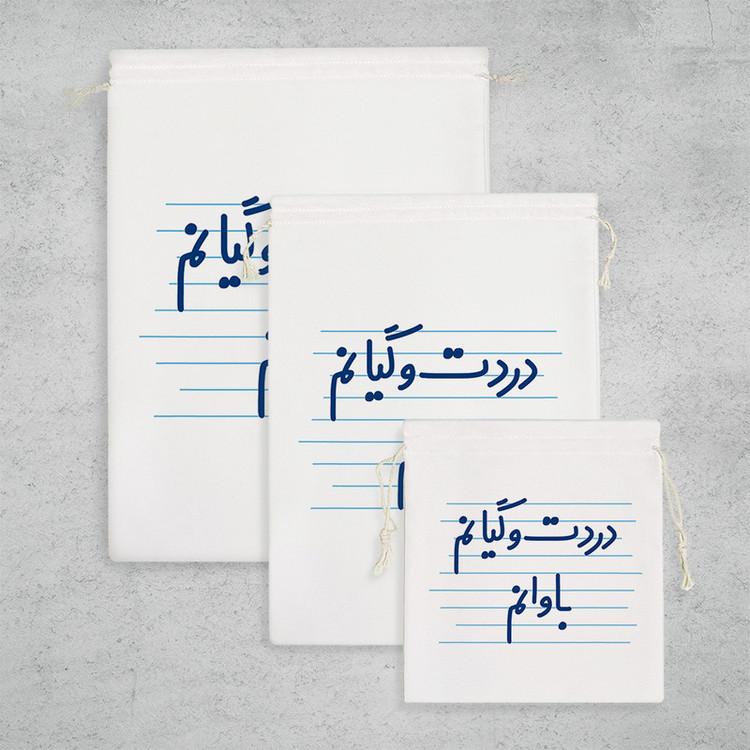 وگیانم
دردت وگیانم
دردت وگیانم
باوانم